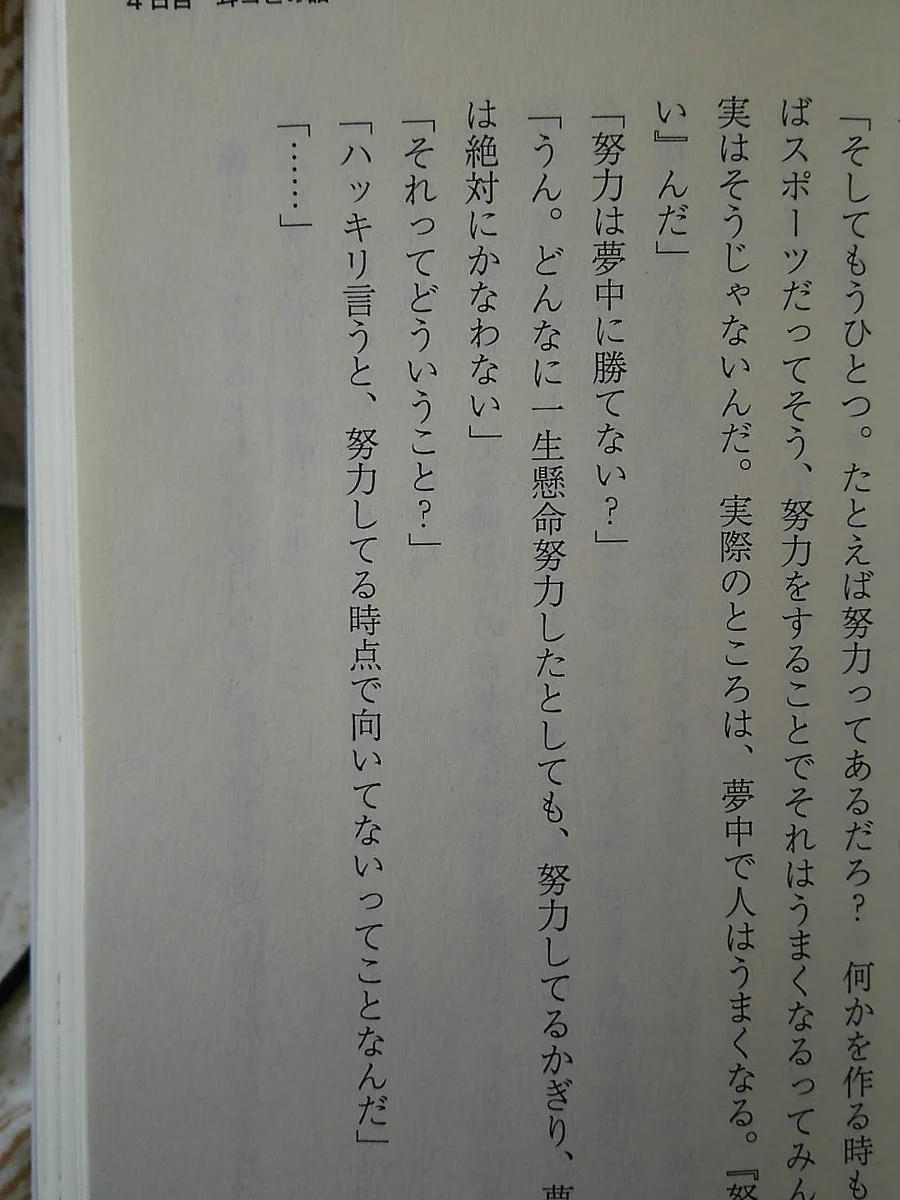 4日目
「そしてもうひとつ。たとえば努力ってあるだろ？　何かを作る時も
ばスポーツだってそう、努力をすることでそれはうまくなるってみん
実はそうじゃないんだ。実際のところは、夢中で人はうまくなる。『努
い』んだ」
「努力は夢中に勝てない？」
「うん。どんなに一生懸命努力したとしても、努力してるかぎり、夢
は絶対にかなわない」
「それってどういうこと？」
「ハッキリ言うと、努力してる時点で向いてないってことなんだ」
「……」